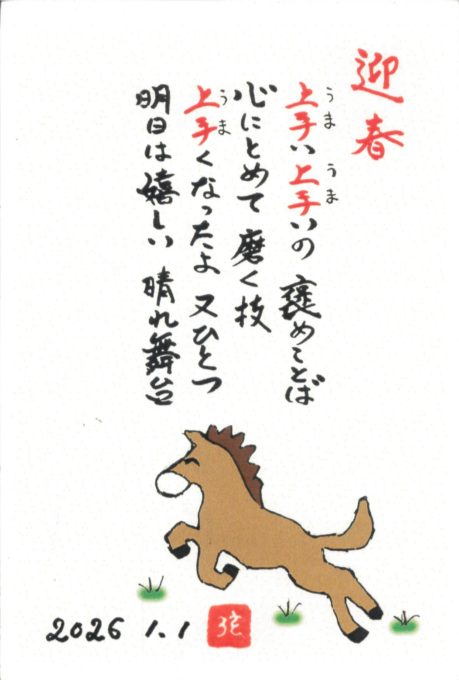 迎春
上手い上手いの 褒めことば
うま うま
心にとめて 磨く技
上手くなったよ 又ひとつ
うま
明日は嬉しい 晴れ舞台
2026 1.1